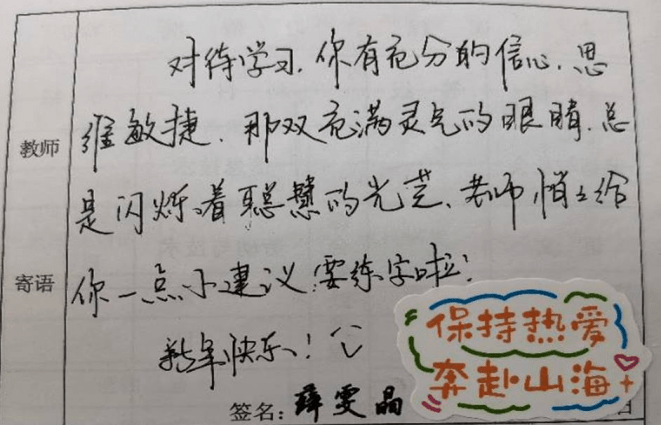 对待学习,你有充分的信心,思
维敏捷,那双充满灵气的眼睛,总
教师
是闪烁着聪慧的光芒,老师悄悄给
寄语
你一点小建议:要练字啦!
新年快乐!
保持热爱
奔赴山海
签名:薛雯晶
日